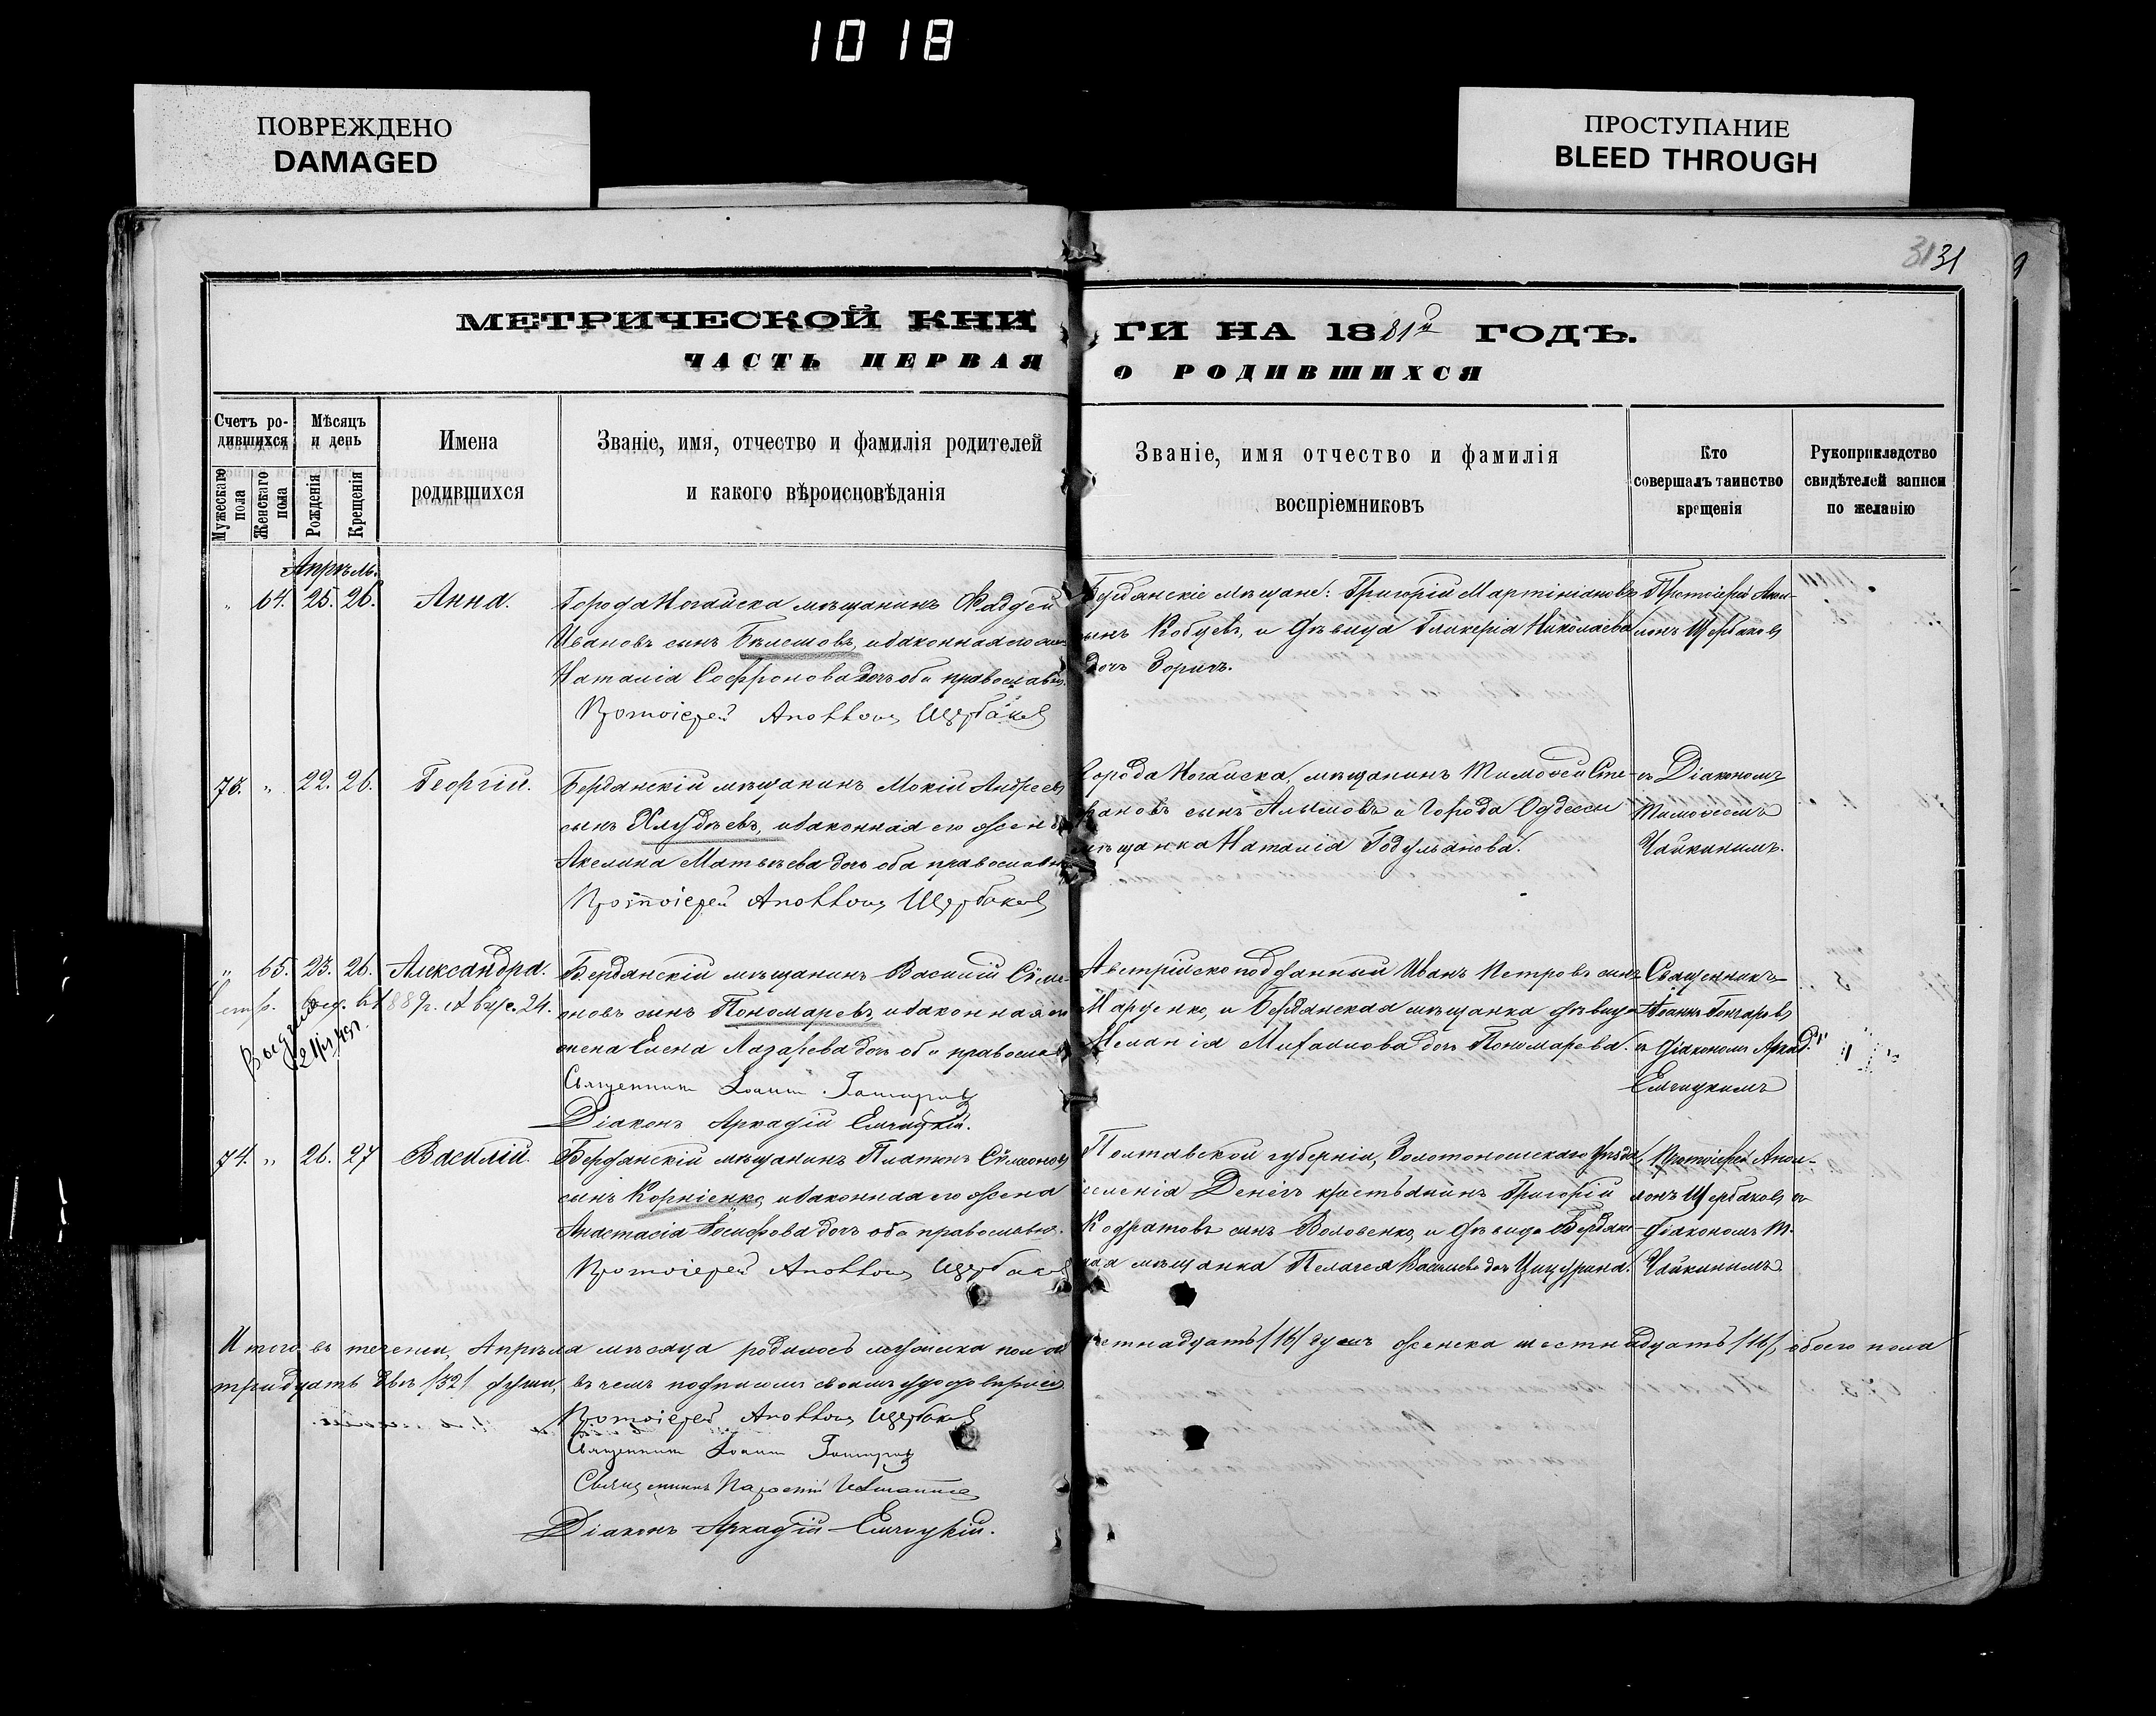 1018
ПОВРЕЖДЕНО
DAMAGED
ПРОСТУПАНИЕ
BLEED THROUGH
31 31
МЕТРИЧЕСКОЙ КНИГИ НА 1881й ГОДЪ.
ЧАСТЬ ПЕРВАЯ О РОДИВШИХСЯ
Счетъ родившихся
Мужескаго пола
Женскаго пола
Мѣсяцъ и день
Рожденія
Крещенія
Имена родившихся
Званіе, имя, отчество и фамилія родителей
и какого вѣроисповѣданія
Званіе, имя отчество и фамилія
воспріемниковъ
Кто
совершалъ таинство
крещенія
Рукоприкладство
свидѣтелей записи
по желанію
Апрѣль.
" 64. 25. 26. Анна.
Города Ногайска мѣщанинъ Фаддей
Ивановъ сынъ и законная его
Наталія Софронова дочь оба православн.
Протоіерей Аполлонъ Щербаковъ
Бердянскіе мѣщане: Григорій Мартиніановъ
сынъ и дѣвица Гликерія Николаева
дочь Зоричъ.
Протоіерей Апол-
лонъ Щербаковъ
73. " 22. 26. Георгій.
Бердянскій мѣщанинъ Мокій Андреевъ
сынъ и законная его жена
Акелина Матвѣева дочь оба православн
Протоіерей Аполлонъ Щербаковъ
Города Ногайска, мѣщанинъ Тимофей Сте-
фановъ сынъ Алымовъ и города Одессы
мѣщанка Наталія
съ Діакономъ
Тимофеемъ
Чайкинымъ.
" 65. 23. 26. Александра.
Бердянскій мѣщанинъ Василій Симе-
оновъ сынъ Пономаревъ, и законная его
жена Елена Лазарева дочь оба православн
Священникъ Іоаннъ Гончаровъ
Діаконъ Аркадій Емчицкій.
Австрійскоподданный Иванъ Петровъ сынъ
Марченко, и Бердянская мѣщанка дѣвица
Меланія Михаилова дочь Пономарева.
Священникъ
Іоаннъ Гончаровъ
съ діакономъ Аркад.
Емчицкимъ
74. " 26. 27 Василій.
Бердянскій мѣщанинъ Платонъ Симеоновъ
сынъ Корніенко, и законная его жена
Анастасія Іосифова дочь оба православн.
Протоіерей Аполлонъ Щербаковъ
Полтавской губерніи, Золотоношскаго уѣзда,
селенія Денегъ крестьянинъ Григорій
Кодратовъ сынъ Воловенко, и дѣвица Бердянс-
кая мѣщанка Пелагея дочь
Протоіерей Апол-
лонъ Щербаковъ съ
діакономъ Т.
Чайкинымъ.
Итого въ теченіи Апрѣля мѣсяца родилось мужеска пола шестнадцать /16/ душъ женска шестнадцать /16/, обоего пола
тридцать двѣ /32/ души, въ чемъ подписомъ своимъ удостовѣряемъ
Протоіерей Аполлонъ Щербаковъ
Священникъ Іоаннъ Гончаровъ
Священникъ
Діаконъ Аркадій Емчицкій.